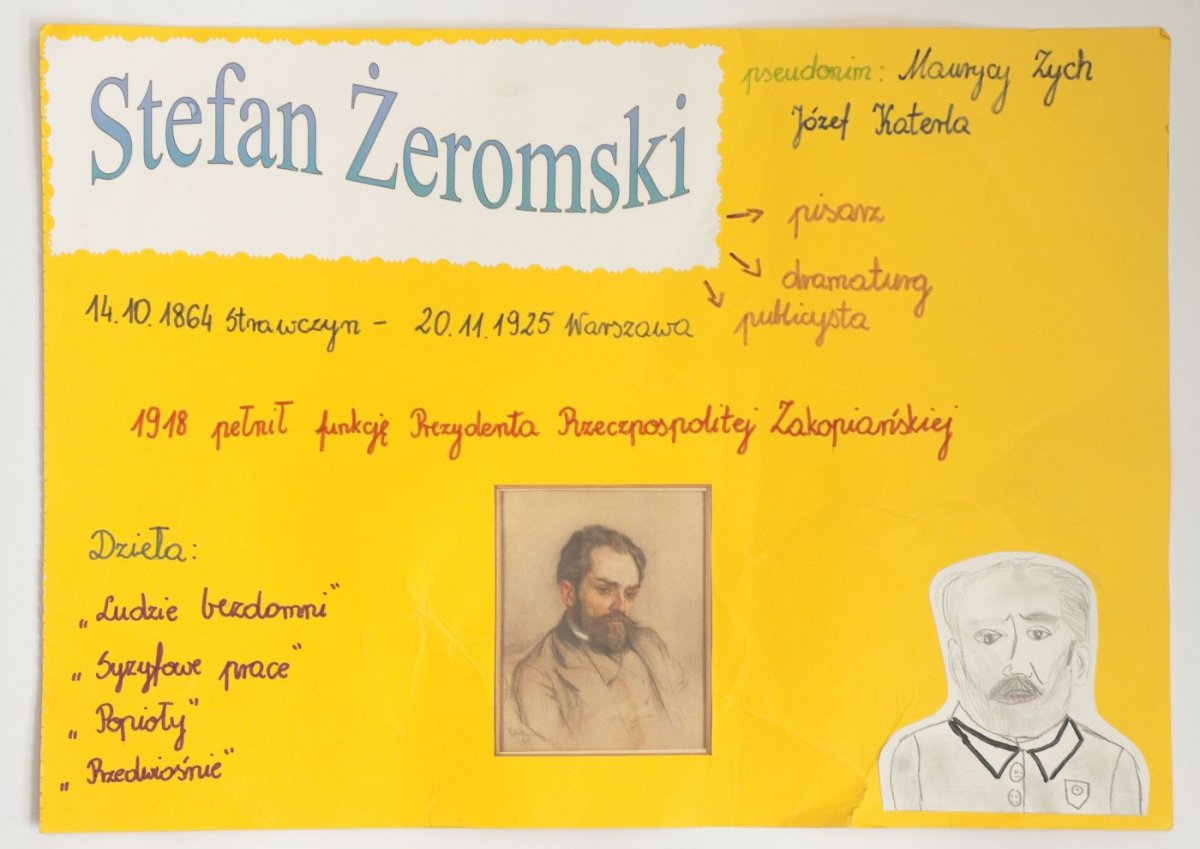 Stefan Żeromski
pseudonim: Maurycy Zych
Józef Katerla
→ pisarz
→ dramaturg
→ publicysta
14.10.1864 Strawczyn - 20.11.1925 Warszawa
1918 pełnił funkcję Prezydenta Rzeczpospolitej Zakopiańskiej
Dzieła:
„Ludzie bezdomni”
„Syzyfowe prace”
„Popioły”
„Przedwiośnie”